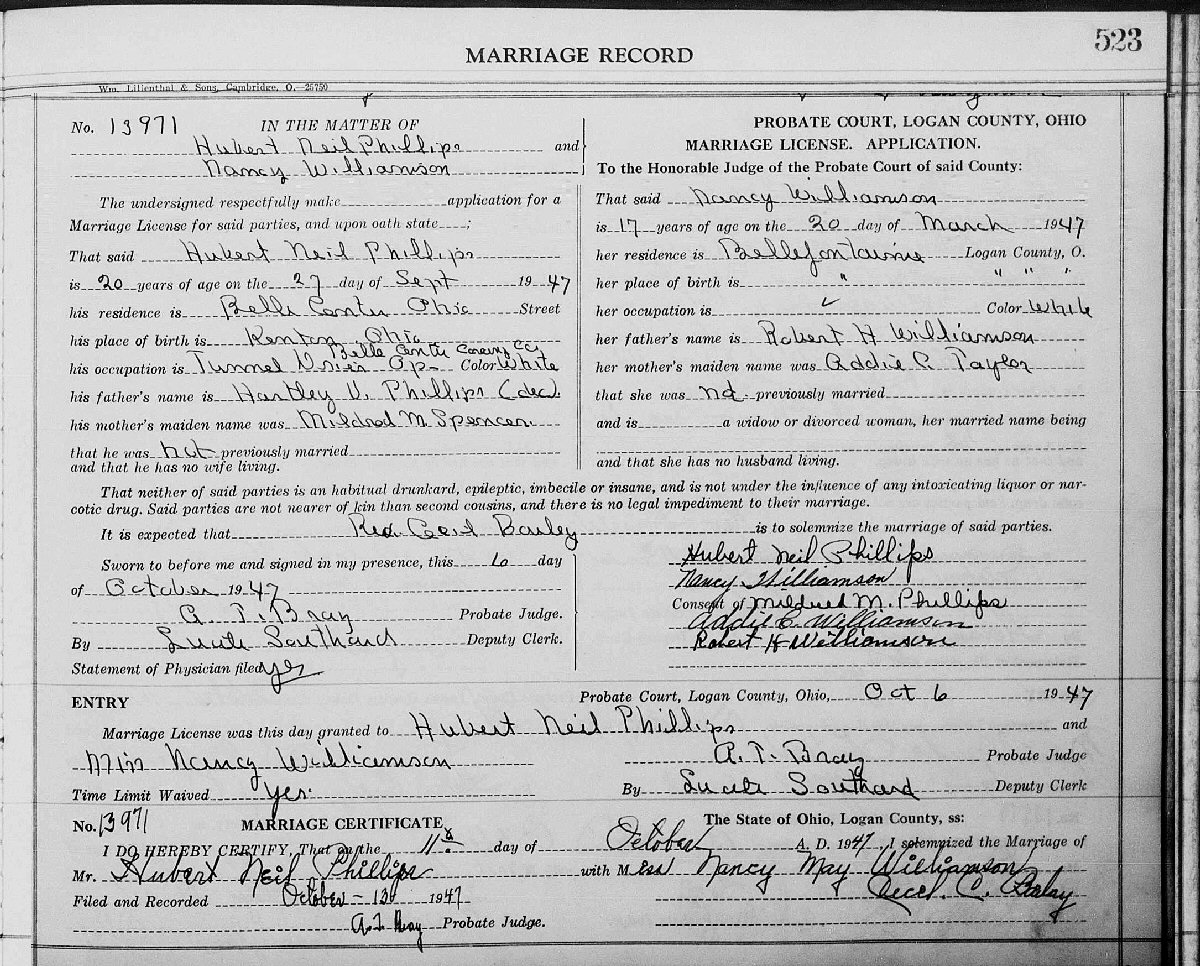 523
MARRIAGE RECORD
Wm. Lilienthal & Sons, Cambridge, O.—25750
No. 13971 IN THE MATTER OF
Hubert Neil Phillips and
Nancy Williamson
The undersigned respectfully make application for a
Marriage License for said parties, and upon oath state ;
That said Hubert Neil Phillips
is 20 years of age on the 27 day of Sept 1947
his residence is Belle Center Ohio Street
his place of birth is Kenton Ohio
Belle Center
his occupation is Tunnel Op Color White
his father's name is Hartley V. Phillips (dec).
his mother's maiden name was Mildred M. Spencer.
that he was not previously married
and that he has no wife living.
PROBATE COURT, LOGAN COUNTY, OHIO
MARRIAGE LICENSE. APPLICATION.
To the Honorable Judge of the Probate Court of said County:
That said Nancy Williamson
is 17 years of age on the 20 day of March 1947
her residence is Bellefontaine Logan County, O.
her place of birth is " " " "
her occupation is ✓ Color White
her father's name is Robert H Williamson
her mother's maiden name was Addie C. Taylor
that she was not previously married
and is a widow or divorced woman, her married name being
and that she has no husband living.
That neither of said parties is an habitual drunkard, epileptic, imbecile or insane, and is not under the influence of any intoxicating liquor or nar-
cotic drug. Said parties are not nearer of kin than second cousins, and there is no legal impediment to their marriage.
It is expected that Rev. Cecil Bailey is to solemnize the marriage of said parties.
Sworn to before me and signed in my presence, this 6 day
of October 1947
A. T. Bray Probate Judge.
By Lucile Southard Deputy Clerk.
Statement of Physician filed yes
Hubert Neil Phillips
Nancy Williamson
Consent of Mildred M. Phillips
Addie C. Williamson
Robert H Williamson
ENTRY Probate Court, Logan County, Ohio, Oct 6 1947
Marriage License was this day granted to Hubert Neil Phillips and
Miss Nancy Williamson A. T. Bray Probate Judge
Time Limit Waived yes. By Lucile Southard Deputy Clerk
No. 13971 MARRIAGE CERTIFICATE The State of Ohio, Logan County, ss:
I DO HEREBY CERTIFY, That on the 11th day of October A. D. 1947, I solemnized the Marriage of
Mr. Hubert Neil Phillips with Miss Nancy May Williamson
Filed and Recorded October - 13 1947 Cecil C. Bailey
A. T. Bray Probate Judge.